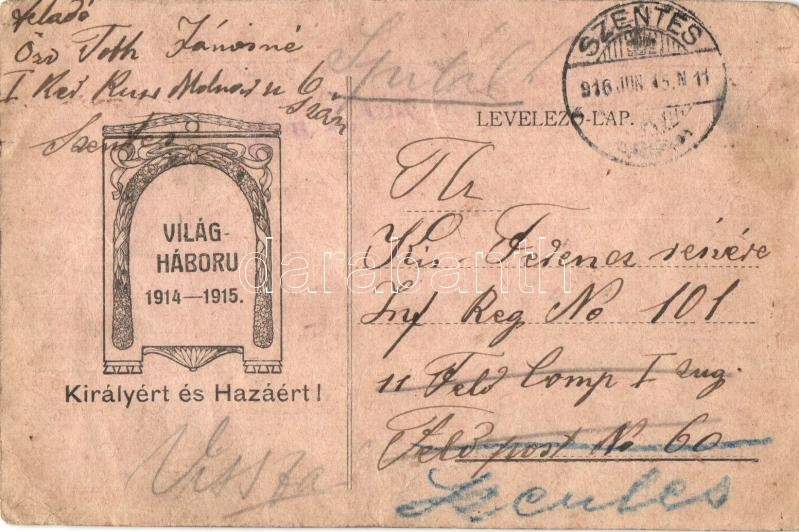 Feladó
Özv Toth Jánosné
I Ker Kiss Molnár u 6
Szám
Szentes
SZENTES
916 JUN 15. N 11
LEVELEZŐ-LAP.
VILÁG-
HÁBORU
1914—1915.
Királyért és Hazáért!
Kis Ferencz részére
Inf Reg No 101
11 Feld Comp I zug.
Feldpost No 60
Vissza
Szentes
darabanth